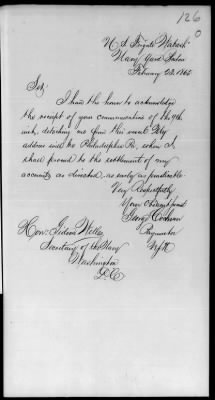 126
0
U. S. Frigate Wabash
Navy Yard Boston
February 23. 1865
Sir;
I have the honor to acknowledge
the receipt of your communication of the 9th
inst, detaching me from this vessel. My
address will be Philadelphia Pa, when I
shall proceed to the settlement of my
accounts as directed, as early as practicable.
Very Respectfully
Your Obdt Servant
George Cochran
Paymaster
U.S.N
Hon: Gideon Welles
Secretary of the Navy
Washington
D.C